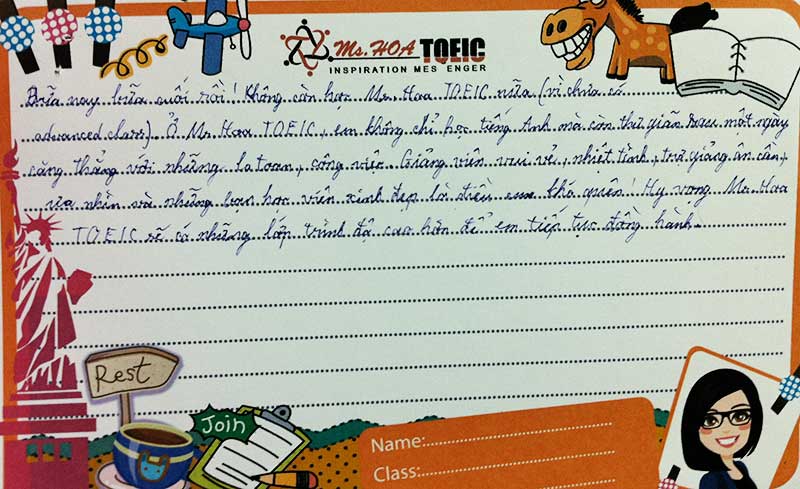 Ms. HOA TOEIC
INSPIRATION MES ENGER
Bữa nay bữa cuối rồi! Không còn học Ms. Hoa TOEIC nữa (vì chưa có
advanced class). Ở Ms. Hoa TOEIC, em không chỉ học tiếng Anh mà còn thư giãn sau một ngày
căng thẳng với những lo toan, công việc. Giảng viên vui vẻ, nhiệt tình, trợ giảng ân cần,
và những bạn học viên xinh đẹp là điều em khó quên! Hy vọng Ms. Hoa
TOEIC sẽ có những lớp trình độ cao hơn để em tiếp tục đồng hành.
Rest
Join
Name:
Class: